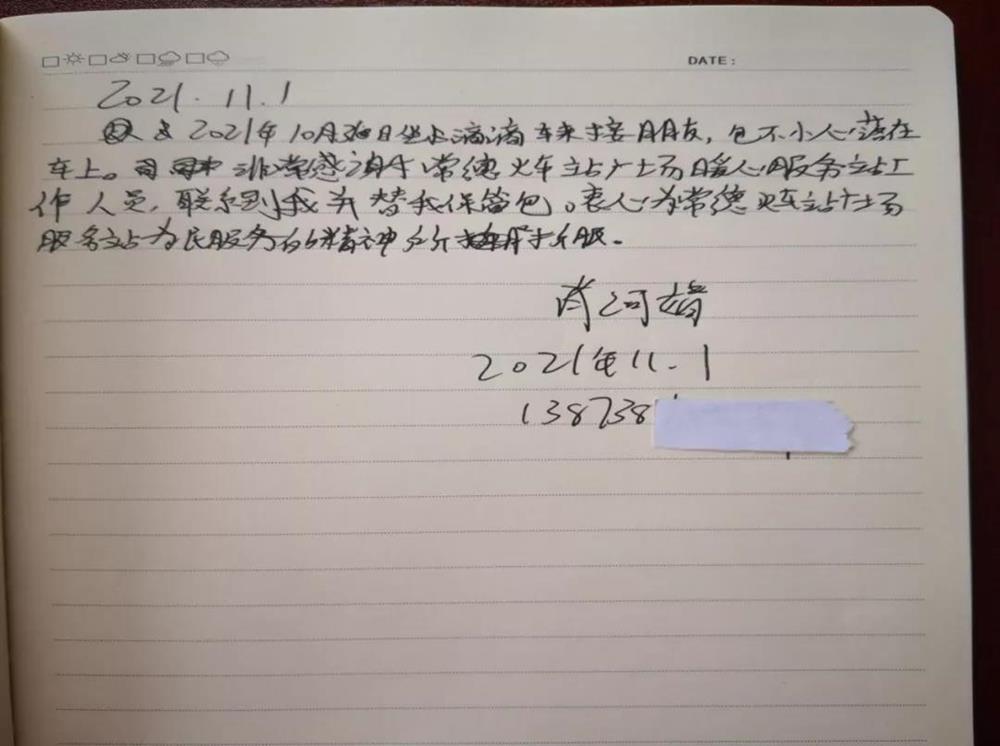 DATE:
2021.11.1
2021年10月日坐上滴滴车来接朋友,包不小心落在
车上。非常感谢常德火车站广场暖心服务站工
作人员,联系到我并替我保管包。衷心为常德火车站广场
服务站为民服务的精神所折服。
肖河婧
2021年11.1
138738